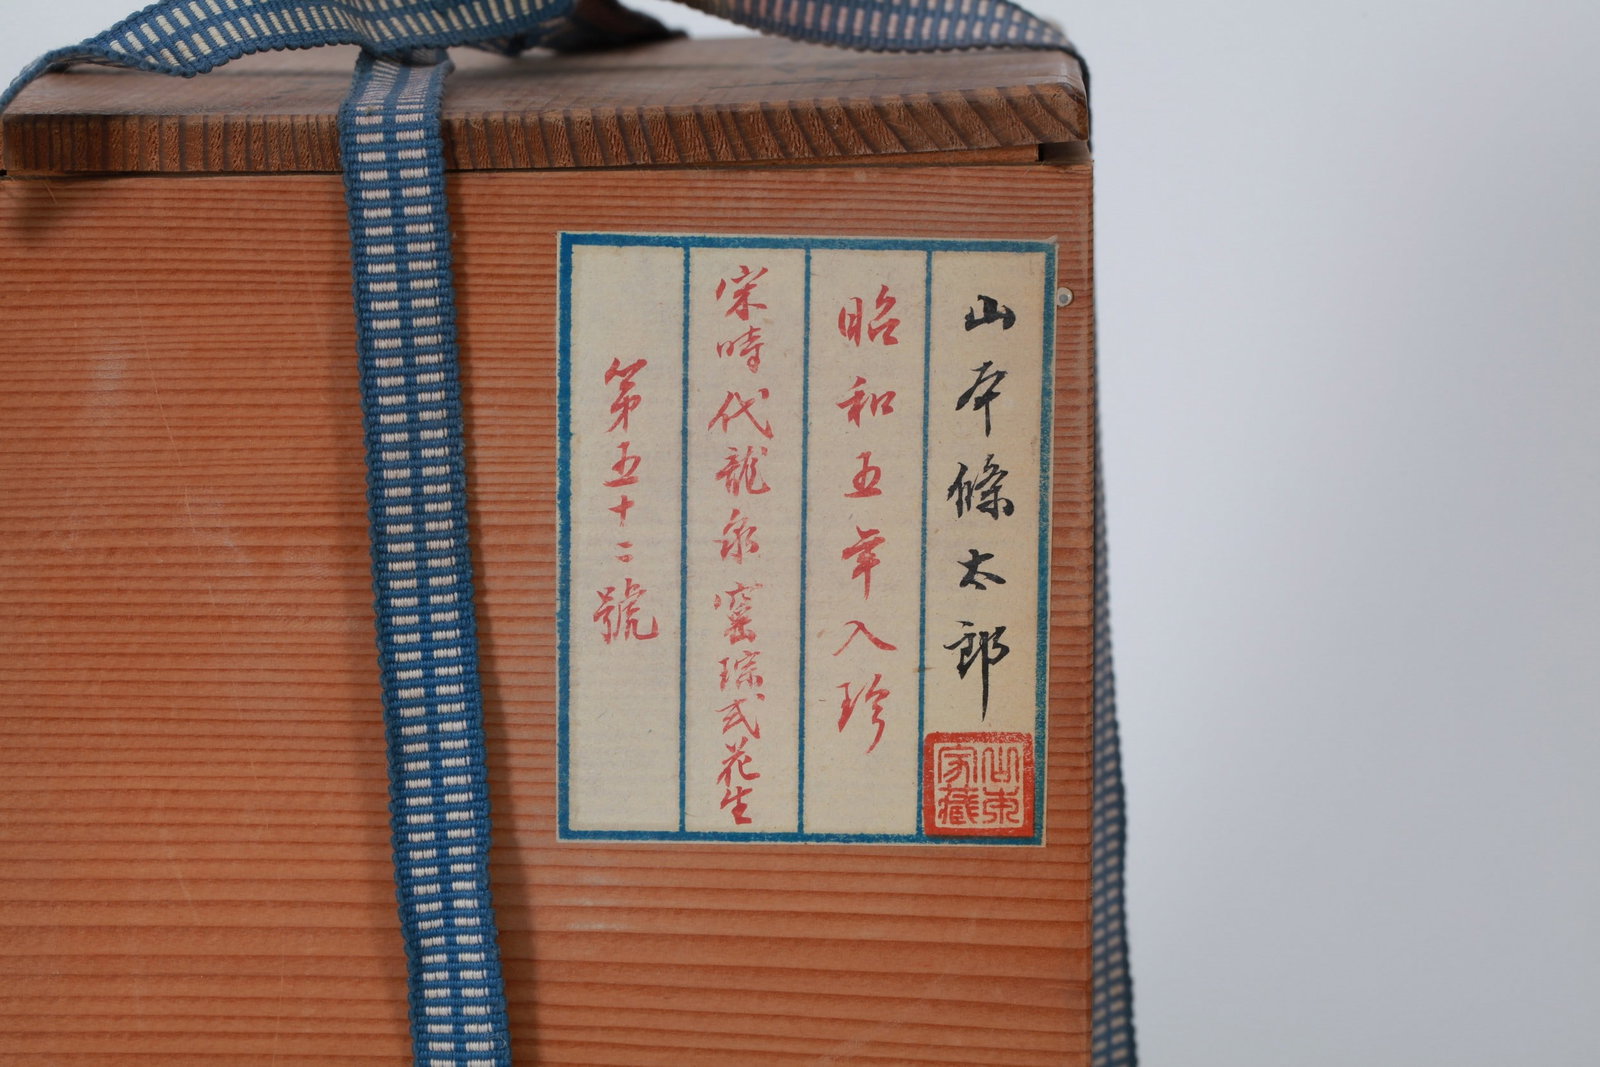 山本條太郎
山本家藏
昭和五年入珍
宋時代龍泉窯琮式花生
第五十二號